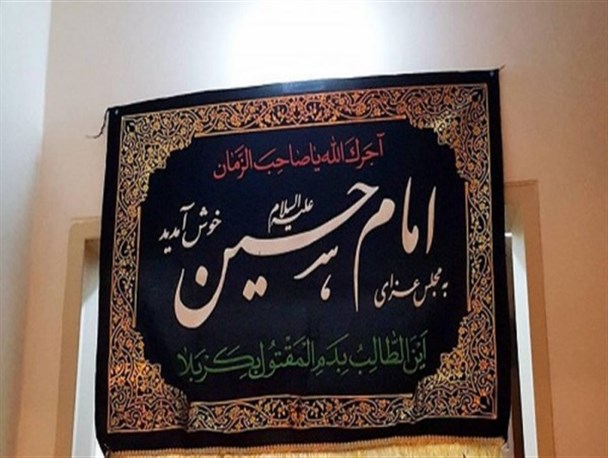 آجرك الله یا صاحب الزمان
به مجلس عزای
امام حسین
علیه السلام
خوش آمدید
أین الطالب بدم المقتول بکربلا